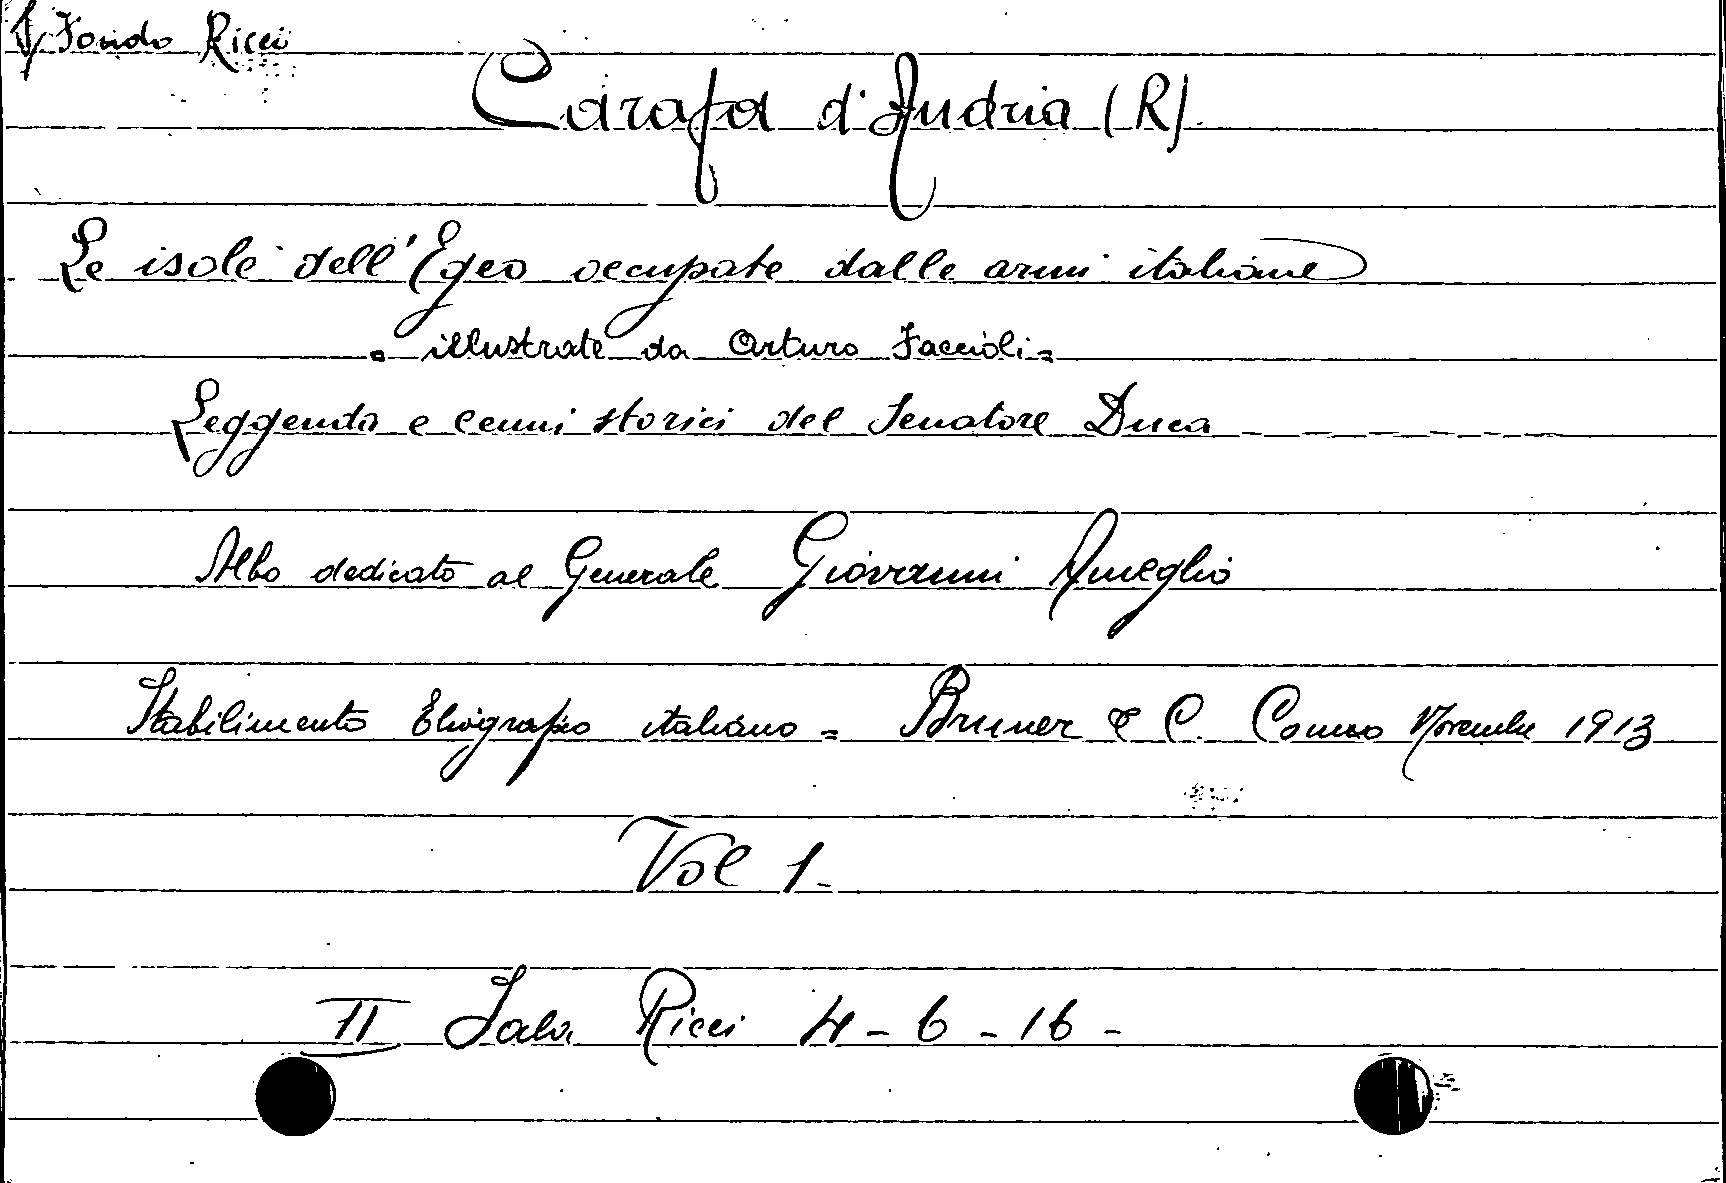 Fondo Ricci
Carafa d'Andria (R)
Le isole dell'Egeo occupate dalle armi italiane
= illustrate da Arturo Faccioli =
Leggenda e cenni storici del Senatore Duca - - - - - -
Albo dedicato al Generale Giovanni Ameglio
Stabilimento Eliografico italiano = Bruner & C. Como Novembre 1913
Vol 1-
II Sala Ricci 4-6-16-